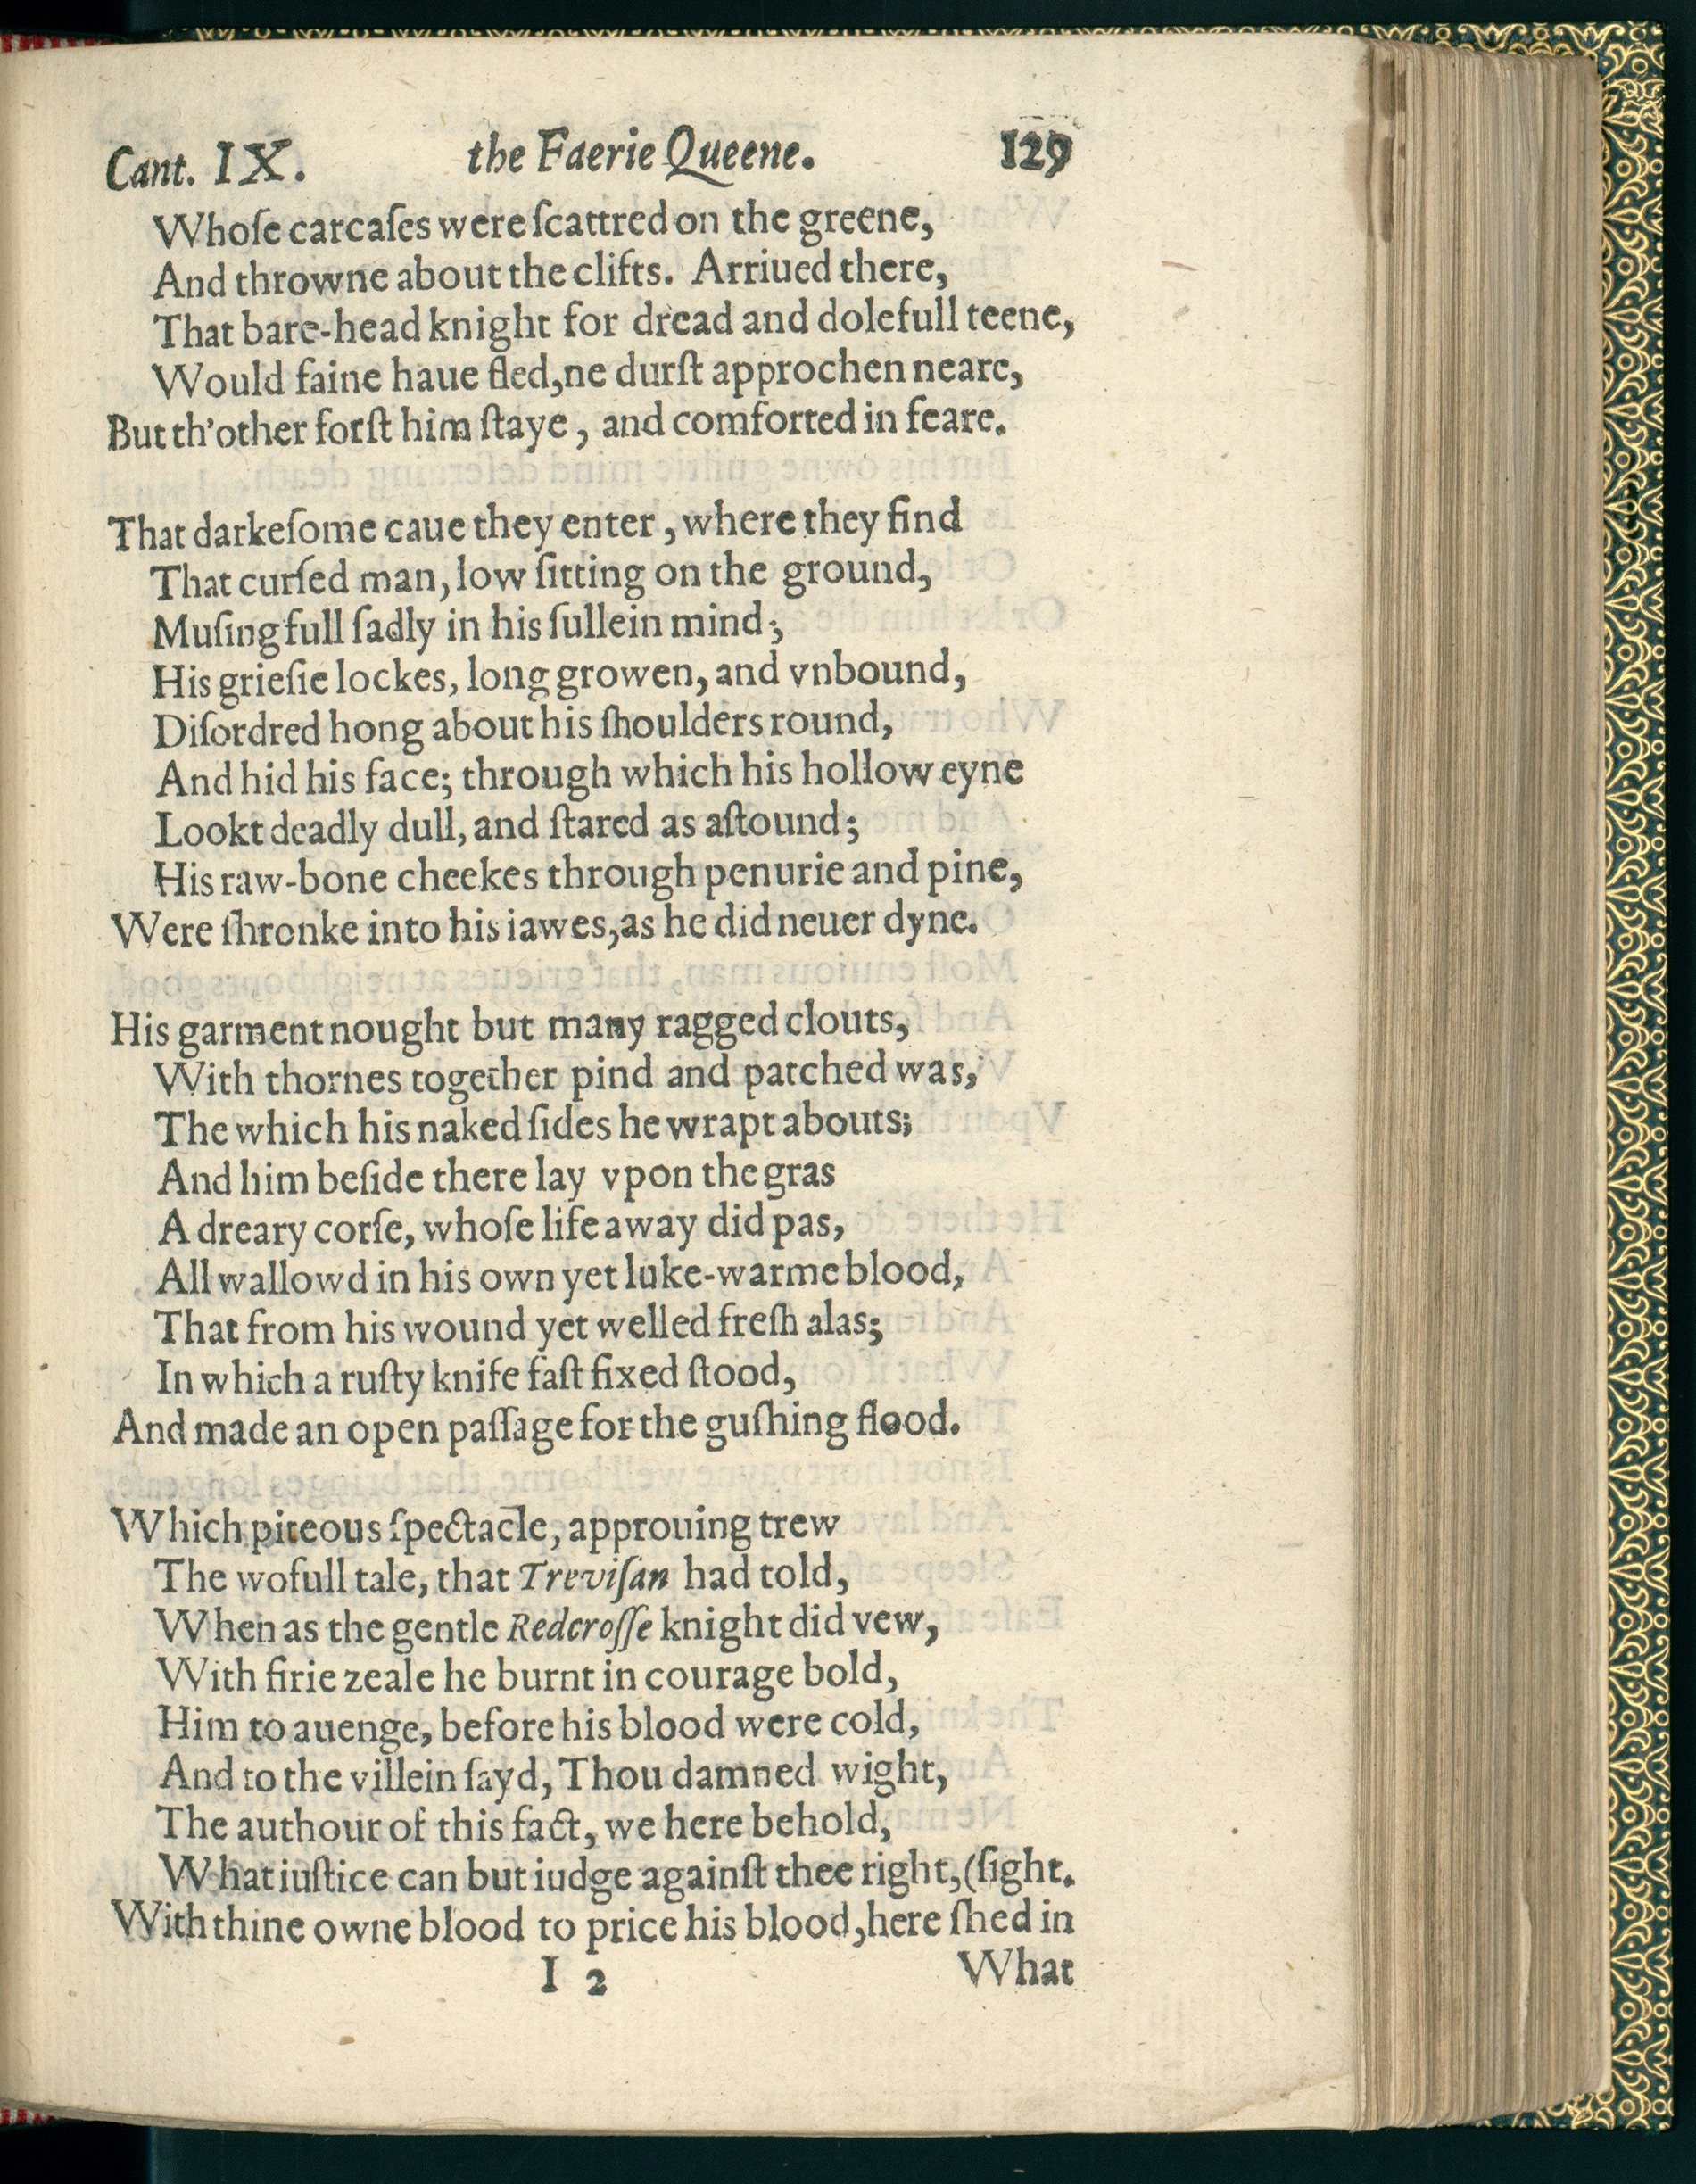 Cant. IX. the Faerie Queene. 129
Whoſe carcaſes were ſcattred on the greene,
And throwne about the clifts. Arriued there,
That bare-head knight for dread and dolefull teene,
Would faine haue fled,ne durſt approchen neare,
But th'other forſt him ſtaye, and comforted in feare.
That darkeſome caue they enter, where they find
That curſed man, low ſitting on the ground,
Muſing full ſadly in his ſullein mind;
His grieſie lockes, long growen, and vnbound,
Diſordred hong about his ſhoulders round,
And hid his face; through which his hollow eyne
Lookt deadly dull, and ſtared as aſtound;
His raw-bone cheekes through penurie and pine,
Were ſhronke into his iawes,as he did neuer dyne.
His garment nought but many ragged clouts,
With thornes together pind and patched was,
The which his naked ſides he wrapt abouts;
And him beſide there lay vpon the gras
A dreary corſe, whoſe life away did pas,
All wallowd in his own yet luke-warme blood,
That from his wound yet welled freſh alas;
In which a ruſty knife faſt fixed ſtood,
And made an open paſſage for the guſhing flood.
Which piteous ſpectacle, approuing trew
The wofull tale, that Treviſan had told,
When as the gentle Redcroſſe knight did vew,
With firie zeale he burnt in courage bold,
Him to auenge, before his blood were cold,
And to the villein ſayd, Thou damned wight,
The authour of this fact, we here behold,
What iuſtice can but iudge againſt thee right,(ſight.
With thine owne blood to price his blood,here ſhed in
I 2 What